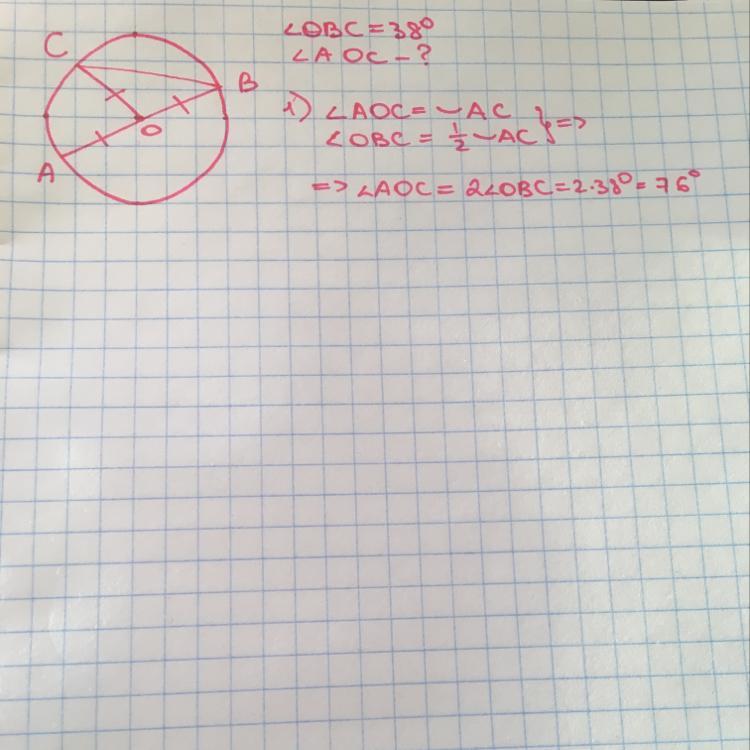 C
B
O
A
∠OBC = 38°
∠AOC - ?
1) ∠AOC = ◡AC
∠OBC = 1/2 ◡AC } =>
=> ∠AOC = 2∠OBC = 2·38° = 76°